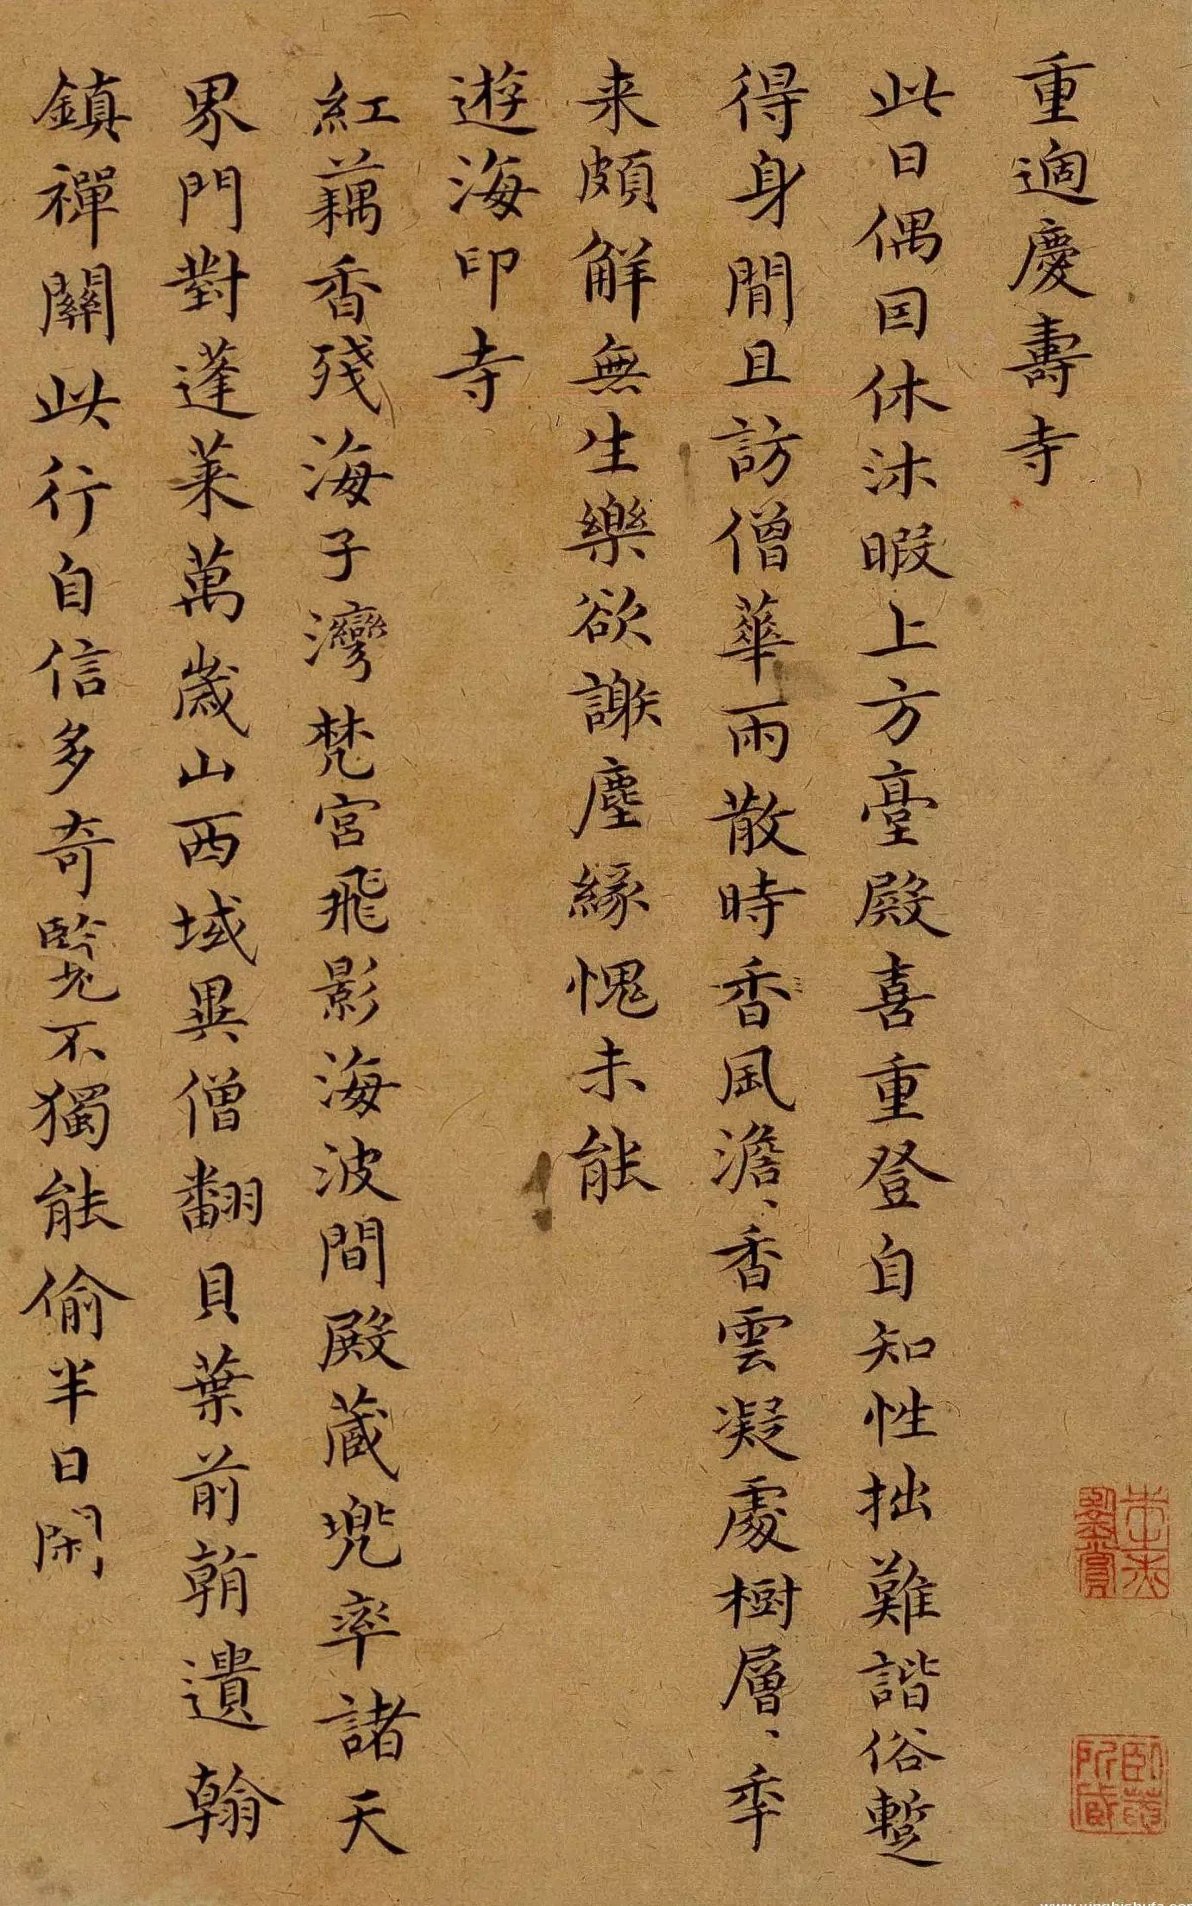 重過慶壽寺
此日偶因休沐暇上方臺殿喜重登自知性拙難諧俗暫
得身閒且訪僧華雨散時香風澹、香雲凝處樹層、年
来頗解無生樂欲謝塵緣愧未能
遊海印寺
紅藕香殘海子灣梵宮飛影海波間殿藏兜率諸天
界門對蓬萊萬歲山西域異僧翻貝葉前朝遺翰
鎮禪關此行自信多奇覽不獨能偷半日閑